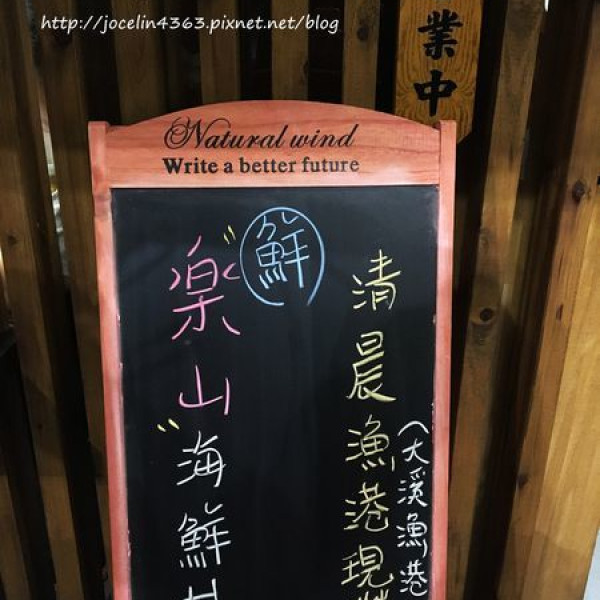 http://jocelin4363.pixnet.net/blog
業中
Natural wind
Write a better future
鮮
清晨漁港現
(大溪漁港
楽山海鮮